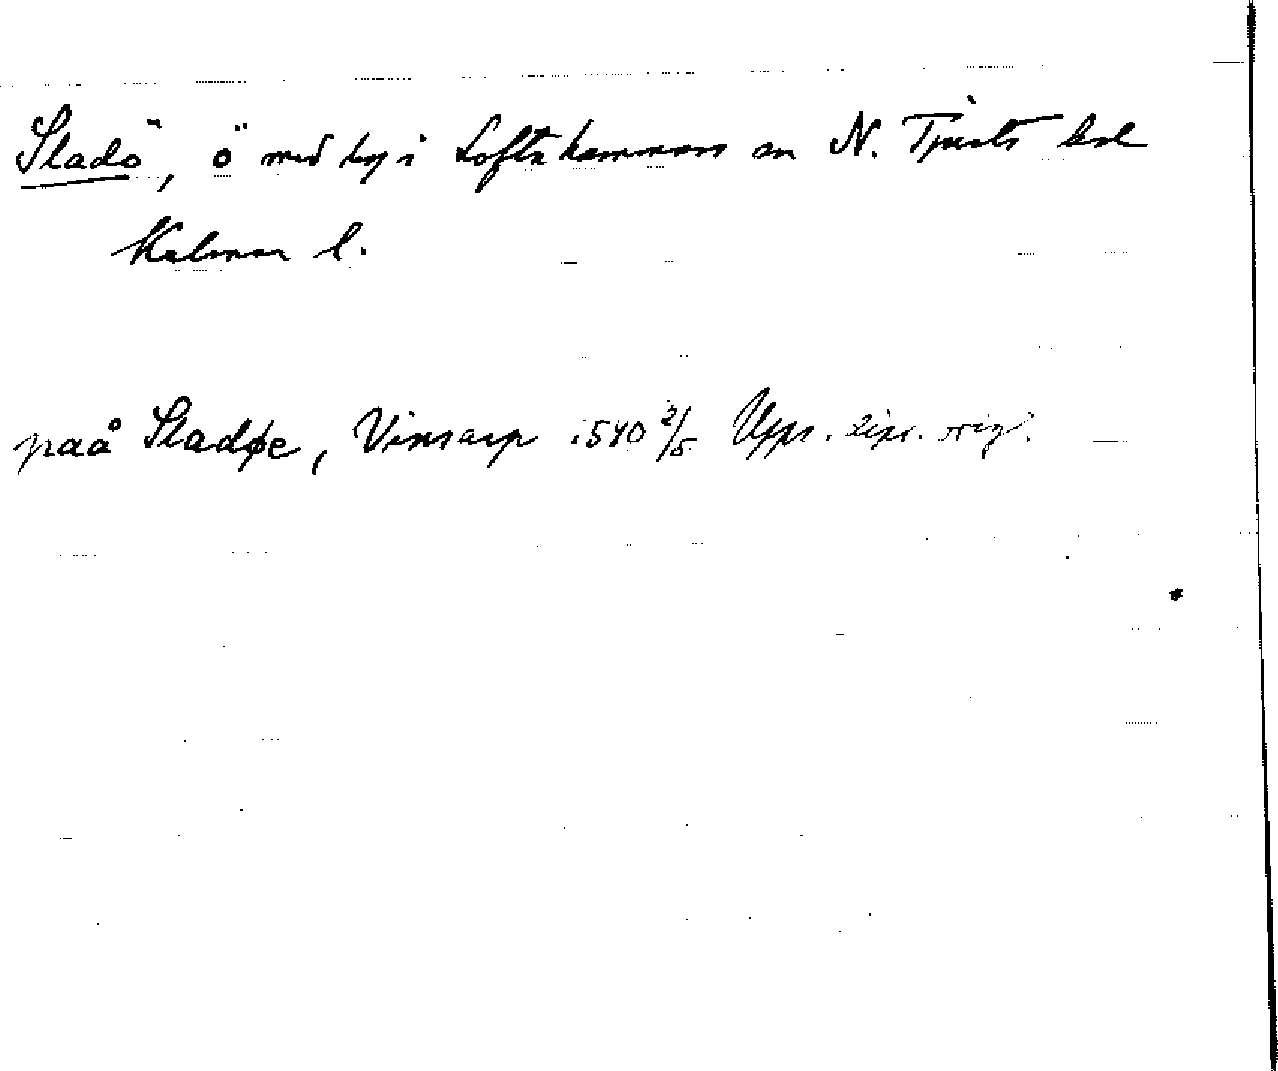 Sladö, ö med by i Loftahammars sn N. Tjusts hd
Kalmar l.
paå Sladøe, Vinsarp 1540 2/5 Upps. dipl. orig.